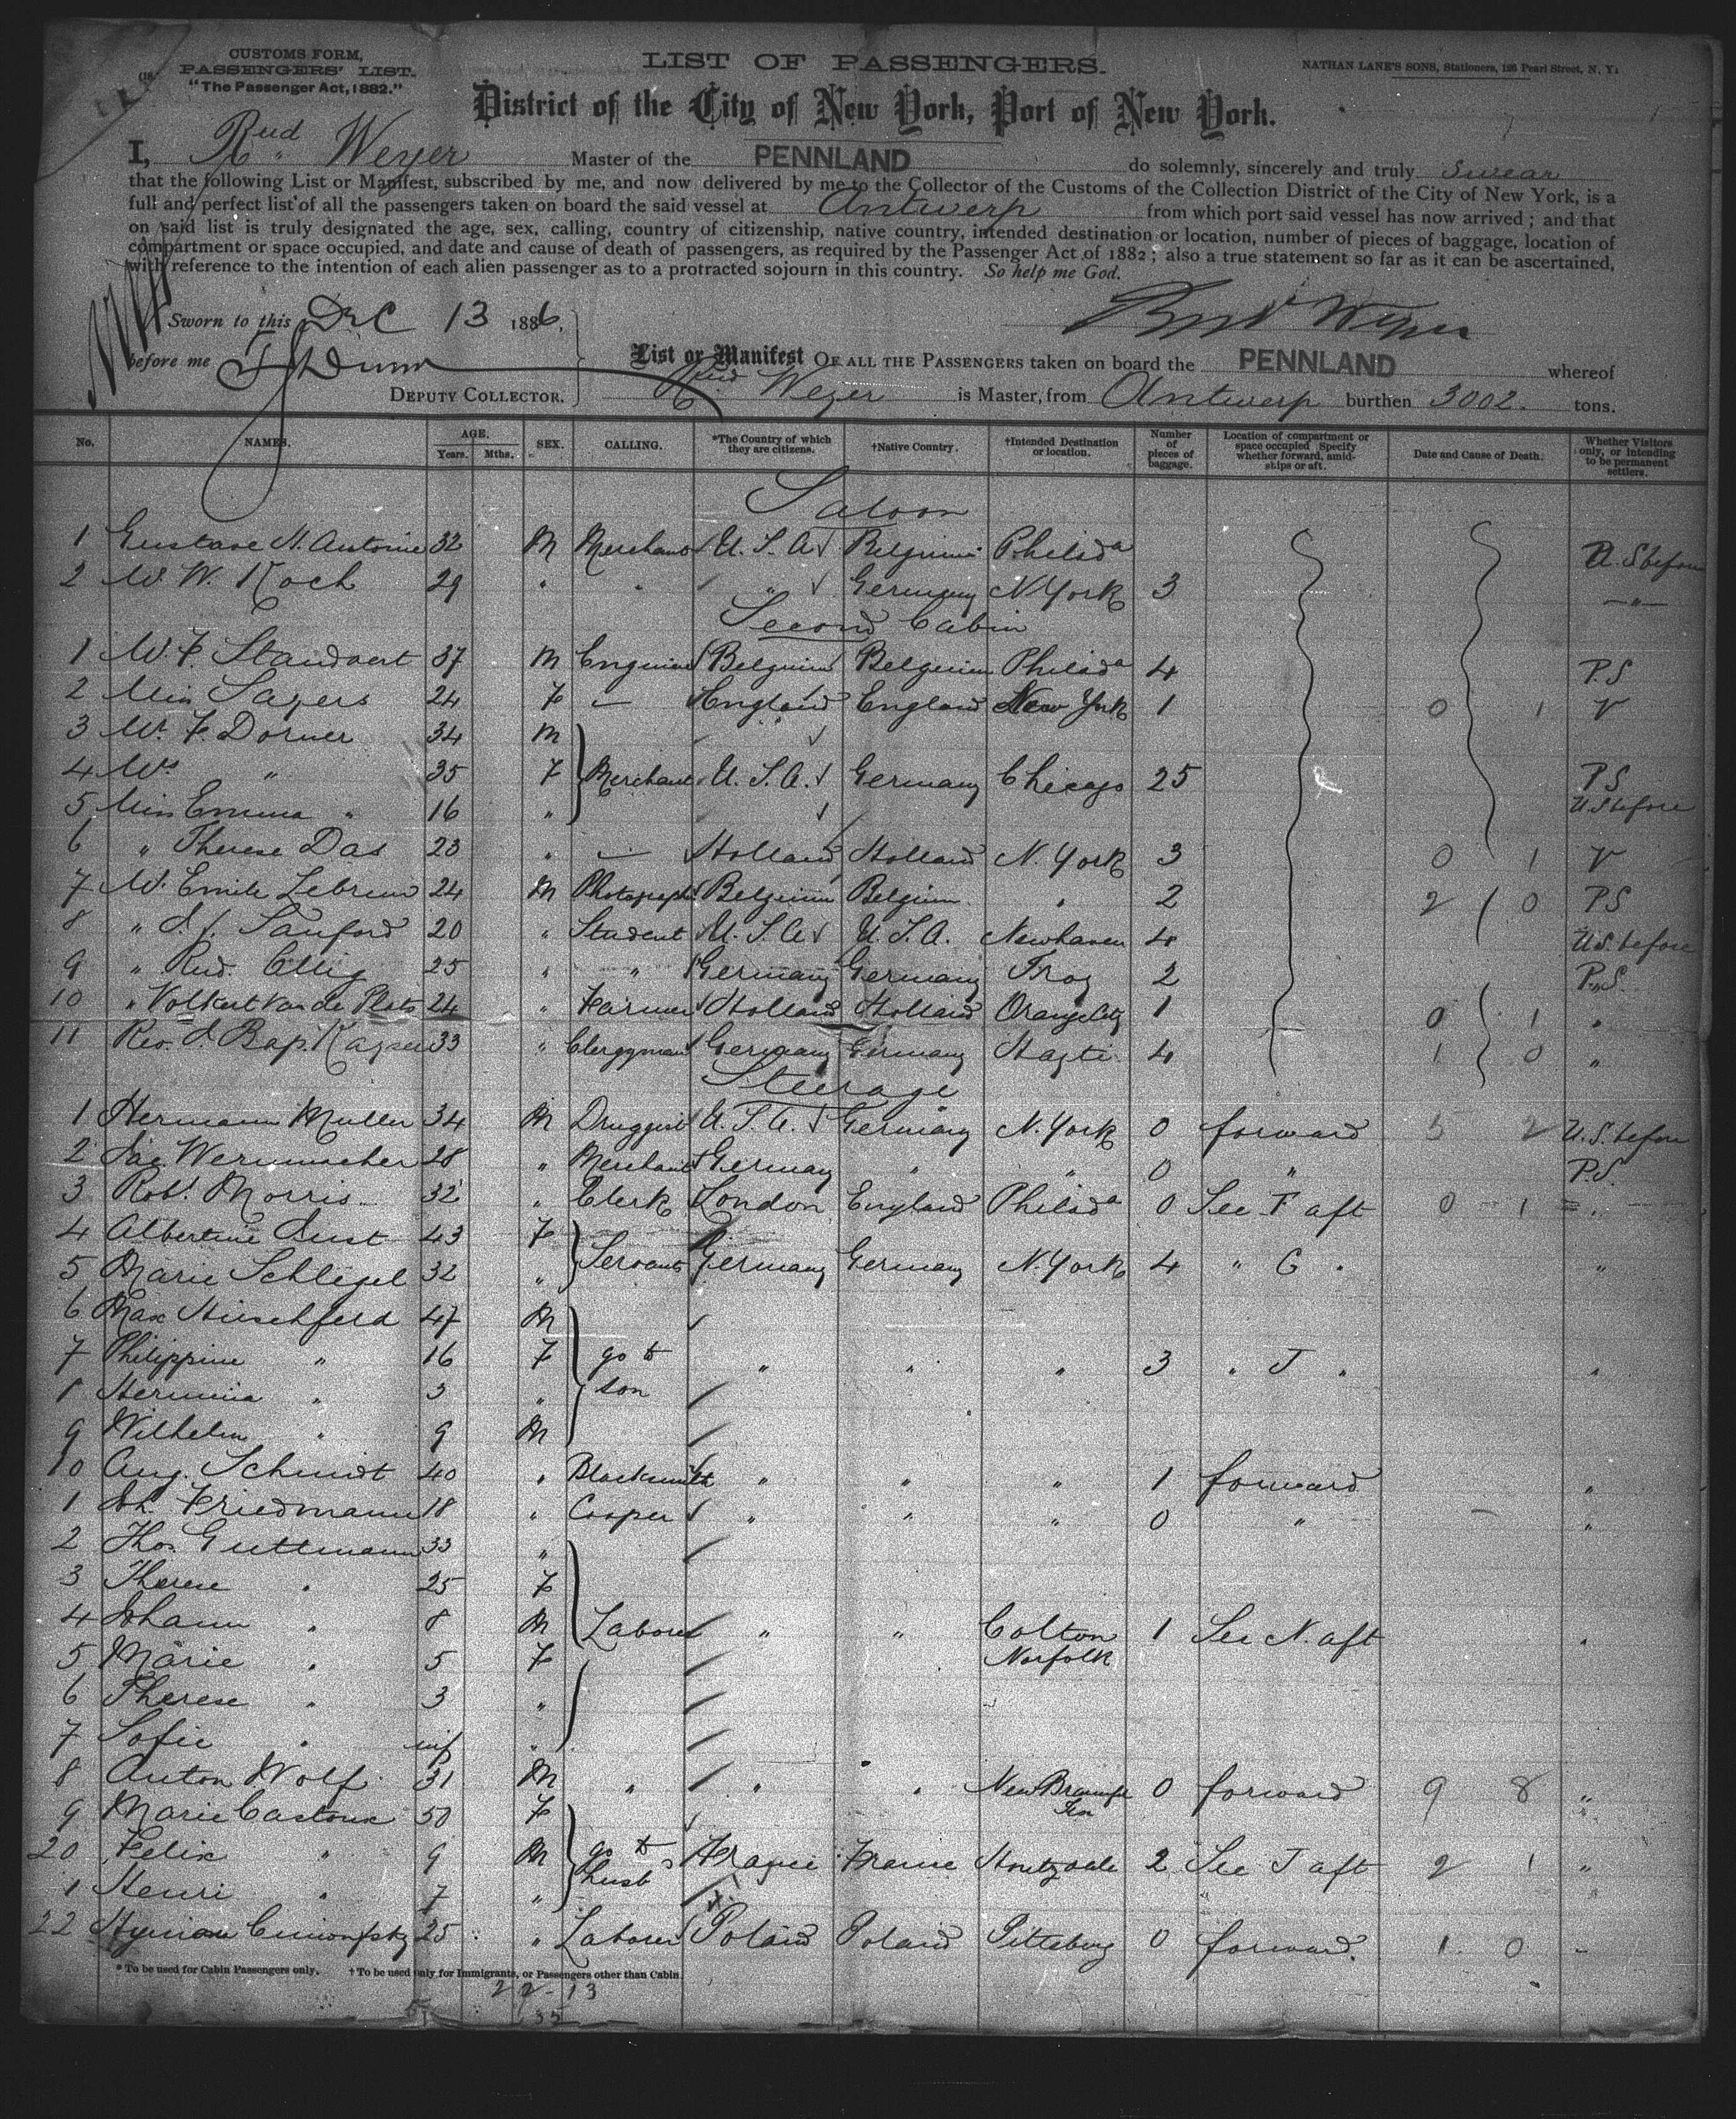 CUSTOMS FORM,
PASSENGERS' LIST.
"The Passenger Act, 1882."
LIST OF PASSENGERS.
NATHAN LANE'S SONS, Stationers, 126 Pearl Street, N. Y.
District of the City of New York, Port of New York.
I, Rud. Weyer Master of the PENNLAND do solemnly, sincerely and truly swear
that the following List or Manifest, subscribed by me, and now delivered by me to the Collector of the Customs of the Collection District of the City of New York, is a
full and perfect list of all the passengers taken on board the said vessel at Antwerp from which port said vessel has now arrived; and that
on said list is truly designated the age, sex, calling, country of citizenship, native country, intended destination or location, number of pieces of baggage, location of
compartment or space occupied, and date and cause of death of passengers, as required by the Passenger Act of 1882; also a true statement so far as it can be ascertained,
with reference to the intention of each alien passenger as to a protracted sojourn in this country. So help me God.
Sworn to this Dec 13 1886.
Rud Weyer
before me Dunn
DEPUTY COLLECTOR.
List or Manifest OF ALL THE PASSENGERS taken on board the PENNLAND whereof
Rud Weyer is Master, from Antwerp burthen 3002. tons.
No. NAMES. AGE. Years. Mths. SEX. CALLING. *The Country of which they are citizens. †Native Country. †Intended Destination or location. Number of pieces of baggage. Location of compartment or space occupied. Specify whether forward, amidships or aft. Date and Cause of Death. Whether Visitors only, or intending to be permanent settlers.
Saloon
1 Gustave N. Antoine 32 M Merchant U. S. A Belgium Philada U. S before
2 W. W. Koch 29 " " " Germany N York 3 — " —
Second Cabin
1 M. F. Standaert 37 M Belgium Belgium Philada 4 P. S
2 Miss Sayers 24 F — England England New York 1 0 1 V
3 Mr. F. Dorner 34 M
4 Mrs " 35 F Merchant U. S. A. Germany Chicago 25 P S
5 Miss Emma " 16 " U S before
6 " Therese Das 23 " — Holland Holland N. York 3 0 1 V
7 M. Emile Lebrun 24 M Photograph Belgium Belgium " 2 2 0 P S
8 " S. J. Sanford 20 " Student U. S. A U. S. A. Newhaven 4 U S. before
9 " Rud. 25 " " Germany Germany Troy 2 P. S.
10 " Volkert van de Plats 24 " Farmer Holland Holland Orange City 1 0 1 "
11 Rev. J. Bap. Kayser 33 " Clergyman Germany Germany 4 1 0 "
Steerage
1 Hermann Muller 34 M Druggist U. S. A. Germany N. York 0 forward 5 2 U. S. before
2 Jac. Wermmacher 28 " Merchant Germany " " 0 " P. S.
3 Robt. Morris 32 " Clerk London England Philada 0 See F aft 0 1 "
4 Albertine Just 43 F
5 Marie Schlegel 32 " Servants Germany Germany N. York 4 " G " "
6 Max Hirschfeld 47 M
7 Philippine " 16 F go to " " " 3 " J " "
8 Hermina " 3 " son
9 Wilhelm " 9 M
10 Aug. Schmidt 40 " Blacksmith " " " 1 forward "
1 Joh. Friedmann 18 " Cooper " " " 0 " "
2 Thos Guttmann 33 "
3 Therese " 25 F
4 Johann " 8 M Laborer " " Colton 1 See N. aft "
5 Marie " 5 F Norfolk
6 Therese " 3 "
7 Sofie " inf "
8 Anton Wolf 31 M " " " New Braunfe Tex 0 forward 9 8 "
9 Marie Castoux 50 F
20 Felix " 9 M go to France France Houtzdale 2 See J aft 2 1 "
1 Henri " 7 " husb
22 25 " Laborer Poland Poland Pittsburg 0 forward. 1 0 "
* To be used for Cabin Passengers only. † To be used only for Immigrants, or Passengers other than Cabin.
22 - 13
35